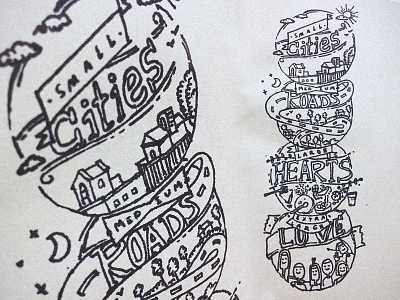 SMALL
Cities
MEDIUM
ROADS
SMALL
Cities
MEDIUM
ROADS
LARGE
HEARTS
EXTRA
LARGE
LOVE